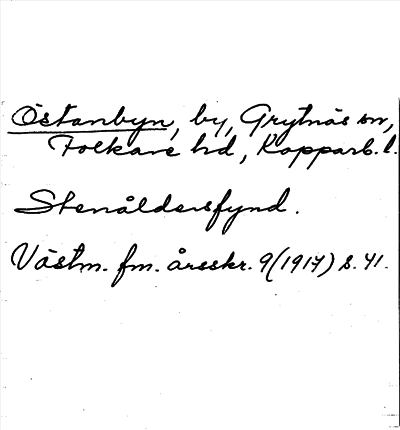 Östanbyn, by, Grytnäs sn,
Folkare hd, Kopparb. l.
Stenåldersfynd.
Västm. fm. årsskr. 9(1917) s. 41.